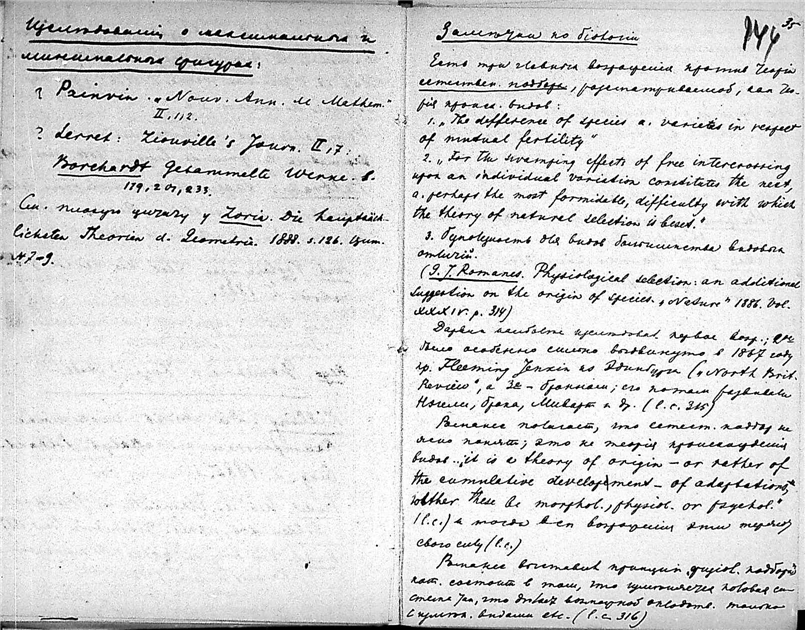 Изследованія о максимальныхъ и
минимальныхъ фигурахъ:
? Painvin. „Nouv. Ann. de Mathem."
II, 112.
? Serret: Liouville's Journ. II, 7:
Borchardt Gesammelte Werke. S.
179, 201, 233.
См. у Lorie. Die hauptsäch-
lichsten Theorien d. Geometrie. 1888. s. 126.
№ 7-9.
35
144
Замѣтки по біологіи
Есть три главныхъ возраженія противъ теоріи
естествен. подбора, разсматриваемой, как тео-
рія происх. видов:
1. „The difference of species a. varieties in respect
of mutual fertility"
2. „For the swamping effects of free intercrossing
upon an individual variation constitutes the next,
a. perhaps the most formidable, difficulty with which
the theory of natural selection is beset."
3. для видов большинства видовых
отличій.
(G. J. Romanes. Physiological selection: an additional
suggestion on the origin of species. „Nature" 1886. Vol.
XXXIV. p. 314)
Дарвин наиболѣе изслѣдовал первое возр.; 2ое
было особенно сильно выдвинуто в 1867 году
пр. Fleeming Jenkin из Эдинбурга („North Brit.
Review", а 3е - ; его потом развивали
Негели, Брока, Миварт и др. (l. c. 315)
Романес полагает, что естест. подбор не
ясно понят; это не теорія происхожденія
видов... „it is a theory of origin – or rather of
the cumulative development – of adaptations,
whether these be morphol., physiol. or psychol."
(l. c.) а тогда всѣ возраженія эти теряют
свою силу (l. c.)
Романес выставил принцип физіол. подбора
кот. состоит в том, что половая си-
стема
видами etc. (l. c. 316)